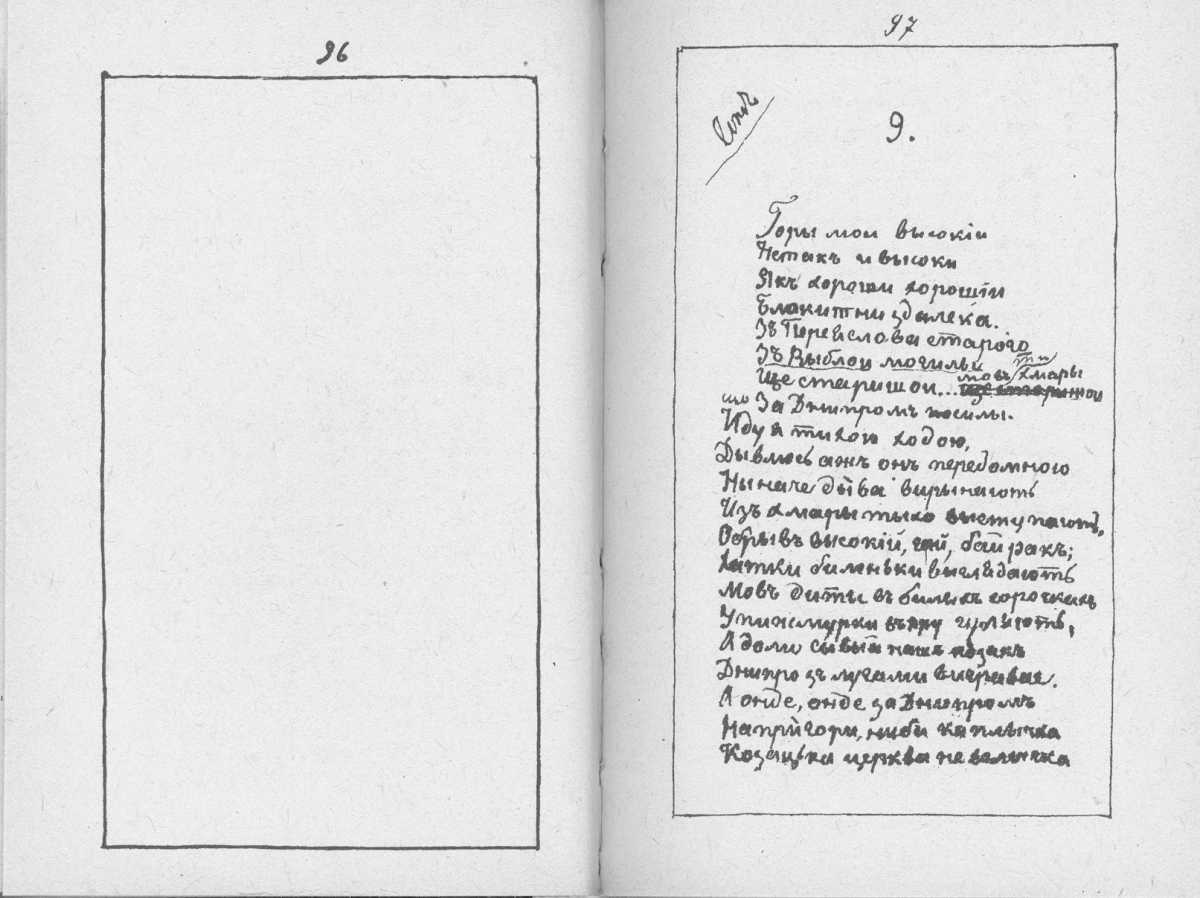 96
97
9.
Горы мои высокіи
Нетакъ и высоки
Якъ хороши хорошіи
Блакитни здалека.
Зъ Переяслова старого
Зъ Выблои могилы
Ще старишои... мовъ ти хмары
що За Днипромъ посилы.
Иду я тихою ходою,
Дывлюсь ажъ онъ передомною
Ныначе дыва вирынають
Изъ хмары тыхо выступають,
Обрывъ высокій, гай, байракъ;
Хатки биленьки выглядають
Мовъ диты въ билыхъ сорочкахъ
У пижмурки въяру гуляють,
А доли сывый нашъ козакъ
Днипро зъ лугами виграває.
А онде, онде за Днипромъ
Напригори, ниби каплычка
Козацька церква невеличка